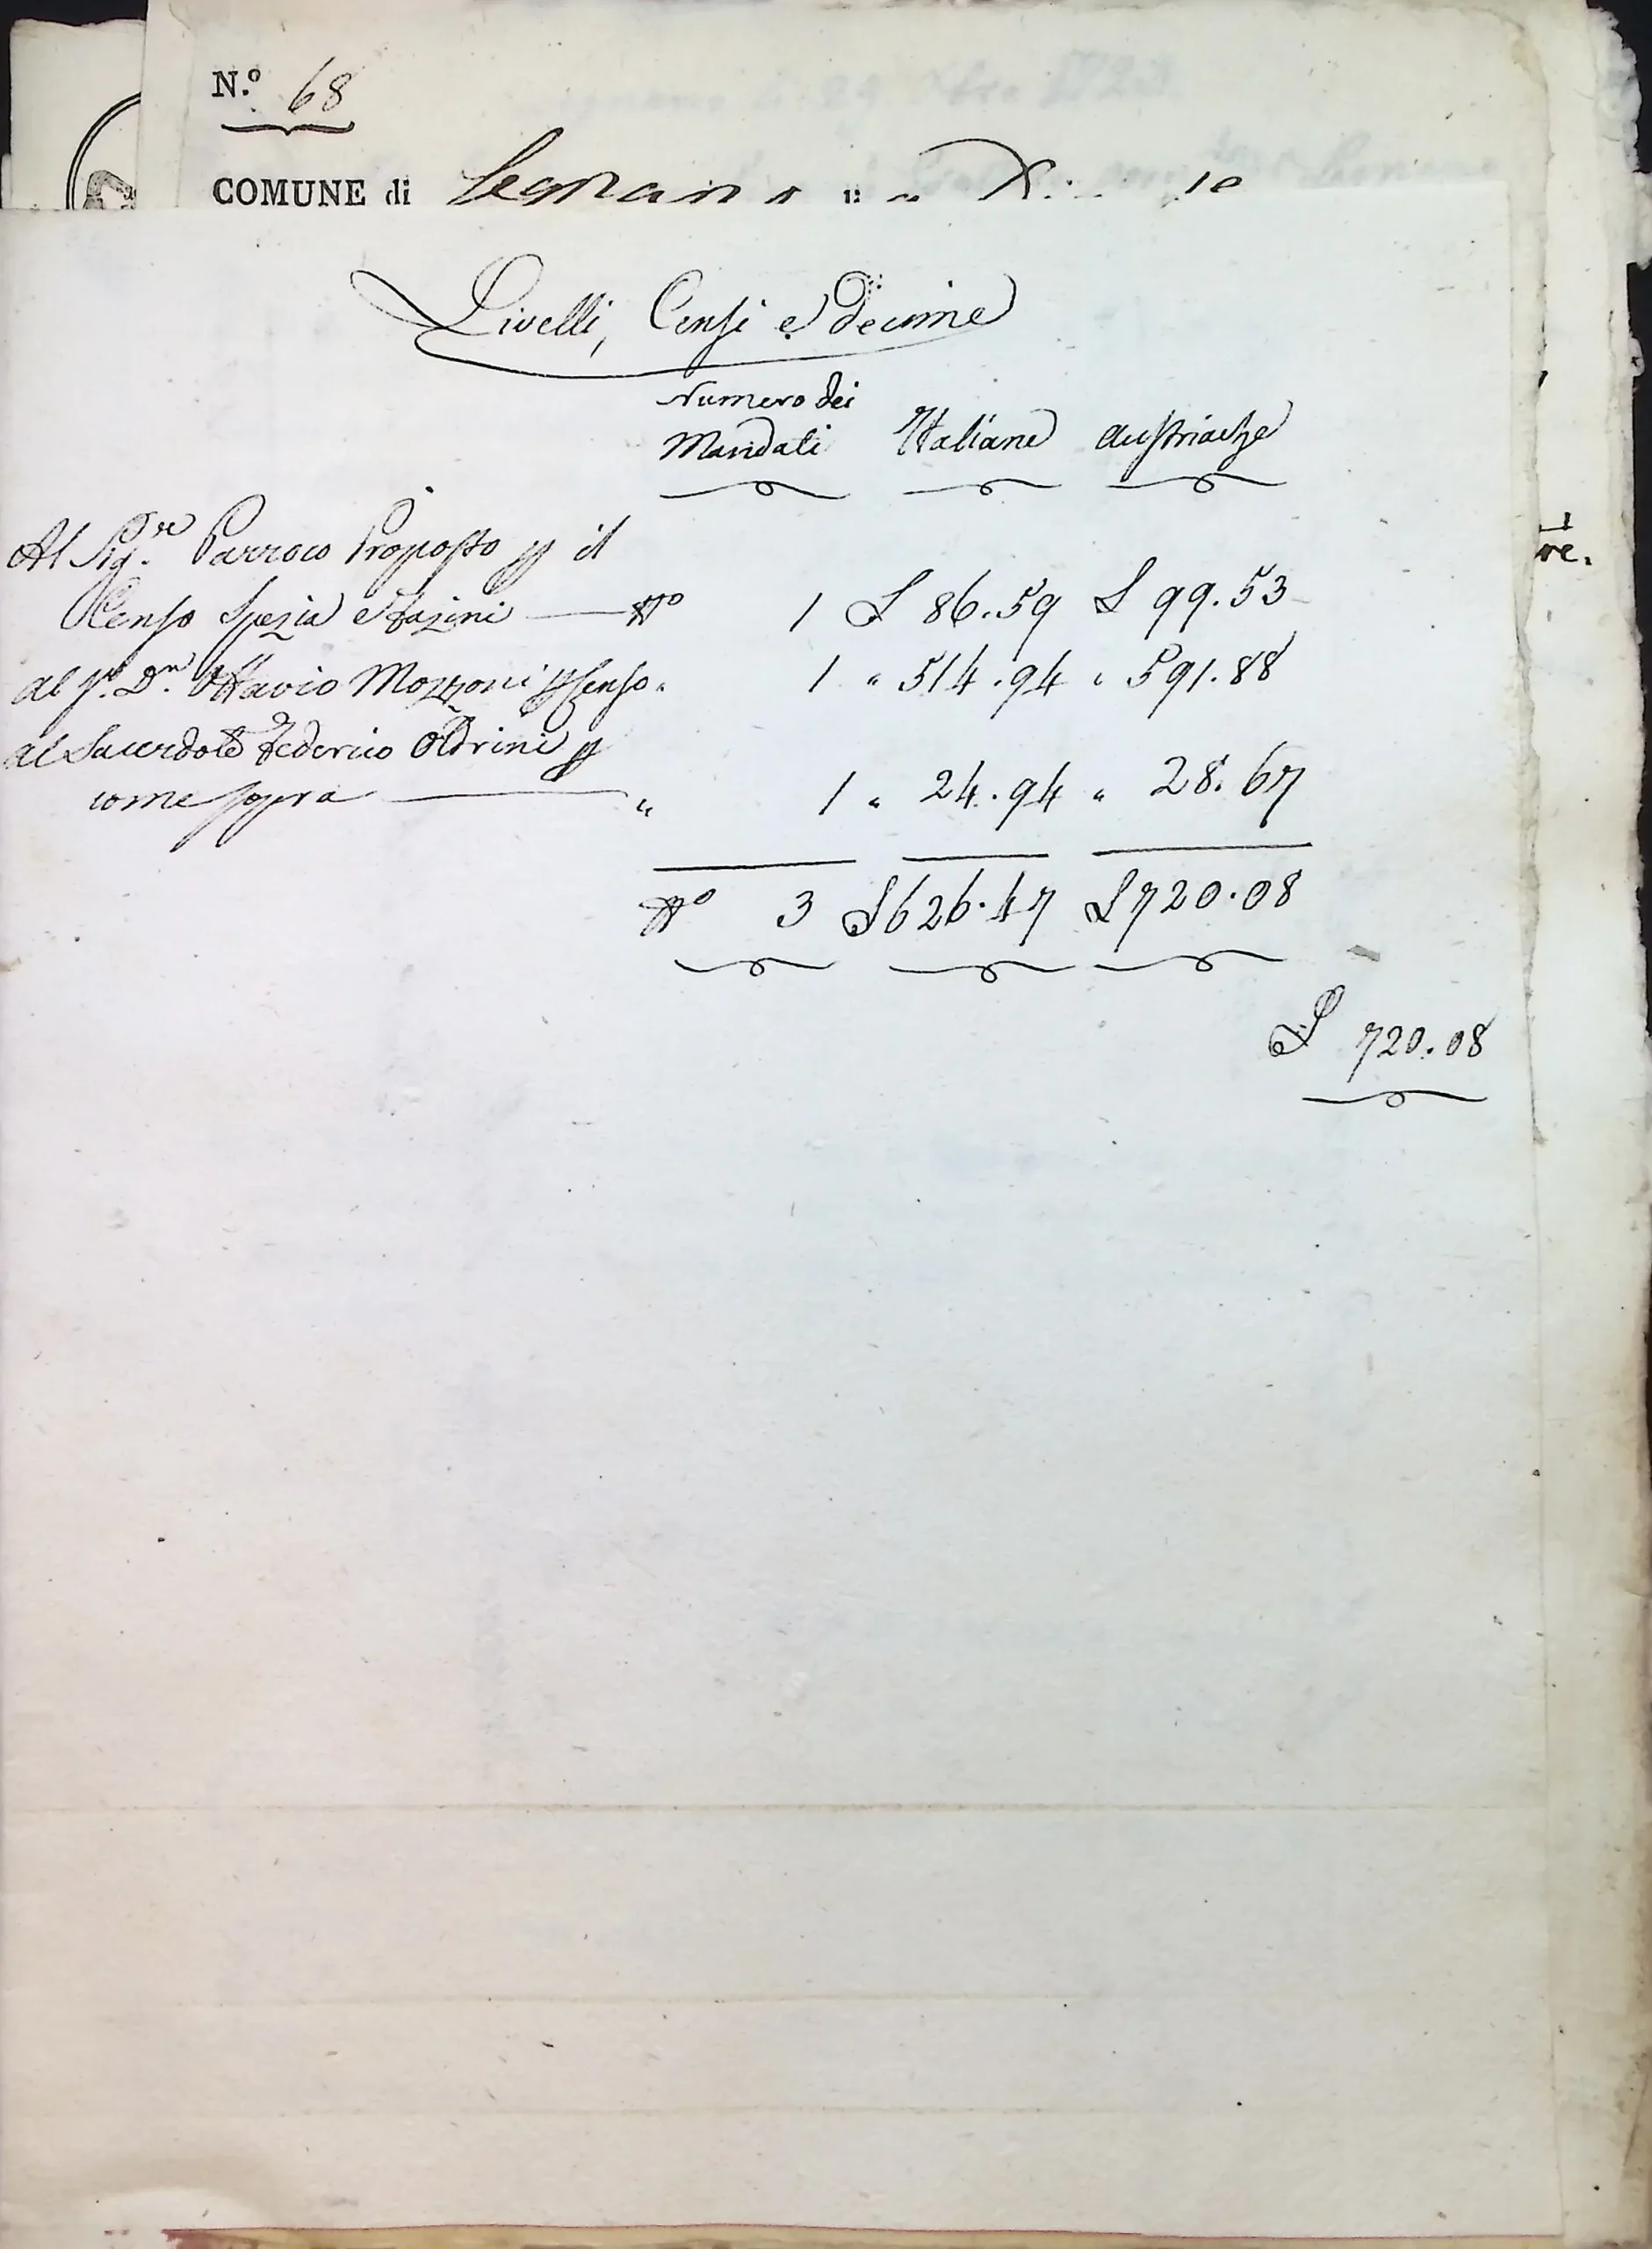 N.º 68
COMUNE di Legnano
Livelli, Censi e Decime
Numero dei
Mandati Italiane Austriache
Al Sig.re Parroco Proposto p il
Censo Spezia e Fazini Nº 1 L 86.59 L 99.53
al Sr. Dn. Ottavio Mozzoni p Censo " 1 " 514.94 " 591.88
al Sacerdote Federico Oldrini p
come sopra " 1 " 24.94 " 28.67
Nº 3 L 626.47 L 720.08
L 720.08
re.